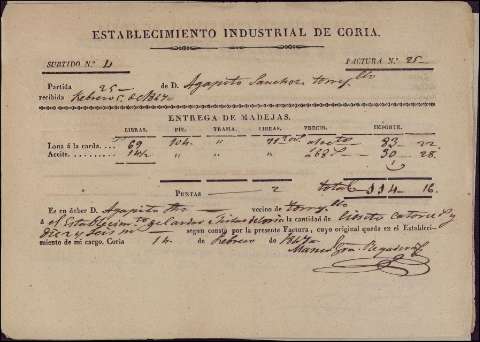 ESTABLECIMIENTO INDUSTRIAL DE CORIA.
SURTIDO N.º 4 FACTURA N.º 25
Partida 25 de D. Agapito Sanchez
recibida Febrero 5 de 1847
ENTREGA DE MADEJAS.
LIBRAS. PIE. TRAMA. LIBRAS. PRECIO. IMPORTE.
Lana á la carda. . . . 69 104 " 83 22
Aceite. . . . 14½ " " 30 28
PUNTAS 2 total 114 16
Es en deber D. Agapito vecino de
á el Establecim.to de la cantidad de ciento catorce y
diez y seis m.s segun consta por la presente Factura, cuyo original queda en el Estableci-
miento de mi cargo. Coria 14 de Febrero de 1847